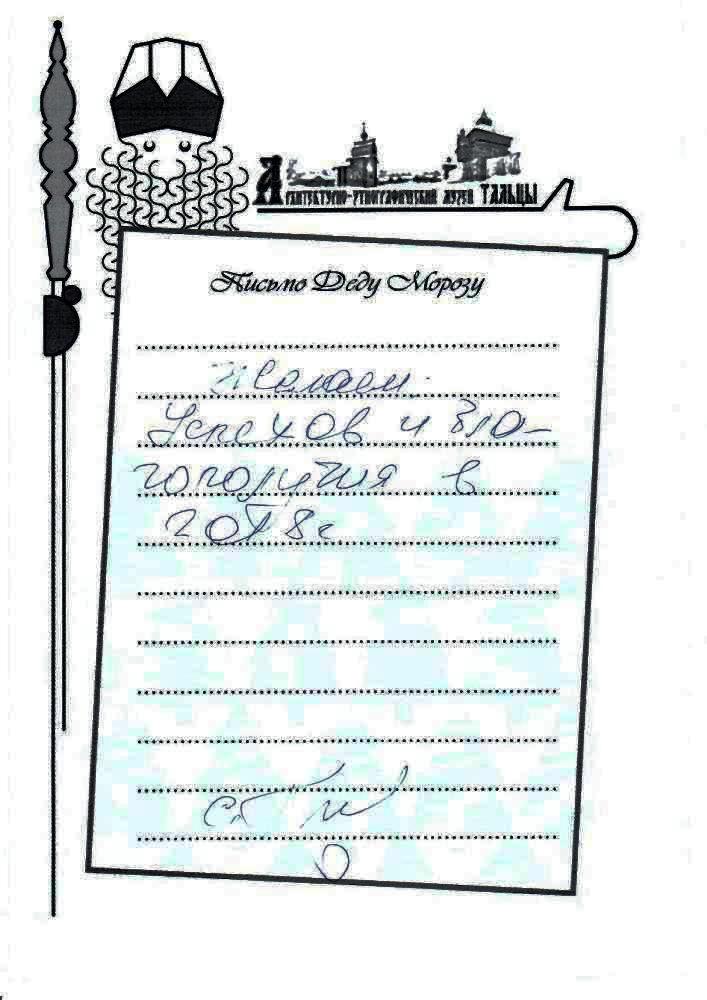 Архитектурно-этнографический музей ТАЛЬЦЫ
Письмо Деду Морозу
Желаем
Успехов и Бла-
гополучия в
2018г